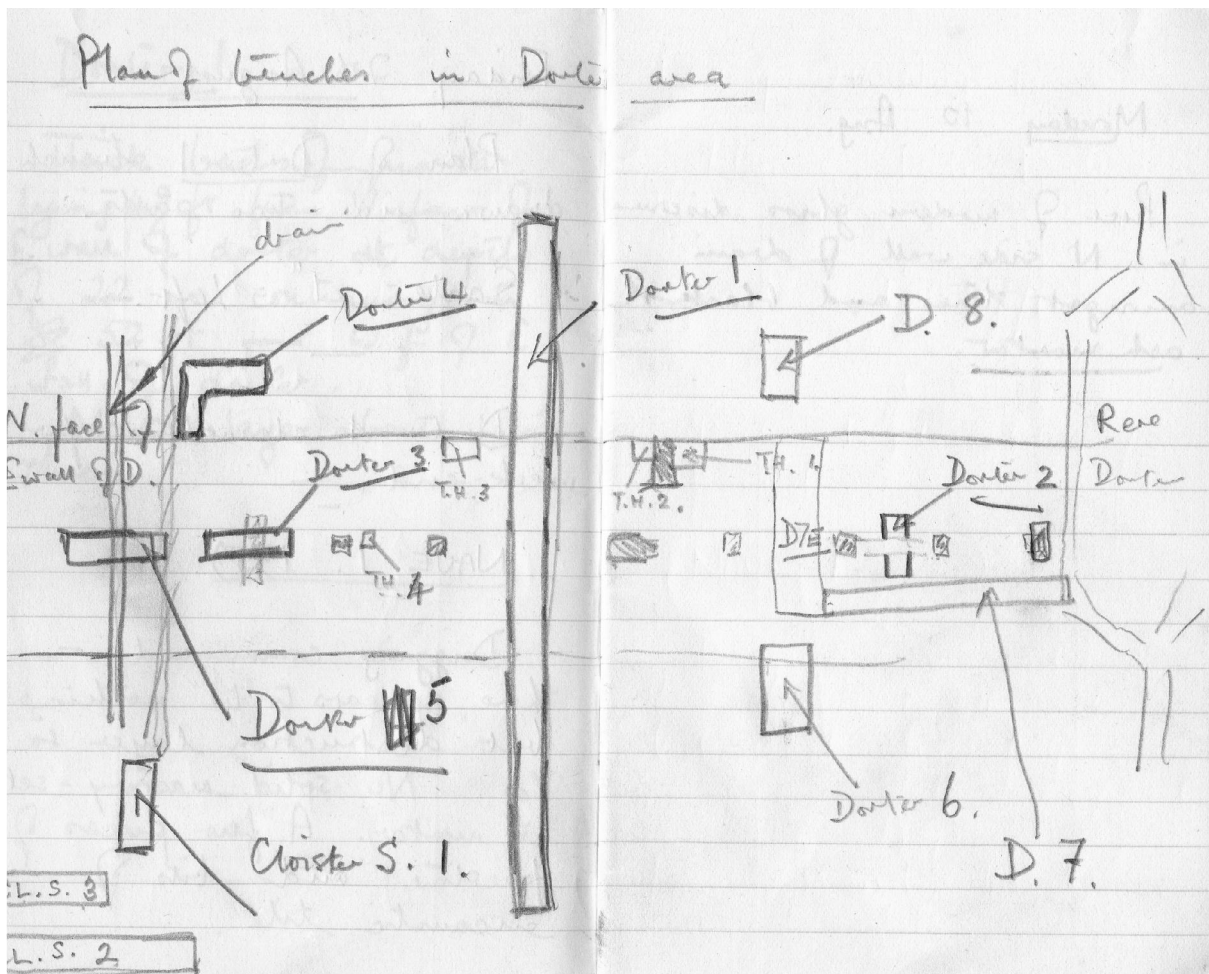 Plan of trenches in Dorter area
drain
Dorter 4
Dorter 1
D. 8.
N. face of
S wall of D.
Dorter 3
T.H.3
T.H.2.
T.H. 1.
Rere
Dorter
Dorter 2
D7E
T.H. 4
Dorter 5
Dorter 6.
D. 7.
Cloister S. 1.
CL. S. 3
L. S. 2